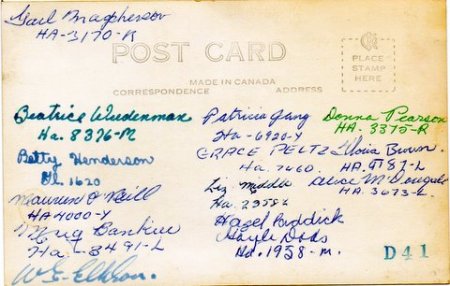 Gail Macpherson
HA-3170-R
POST CARD
MADE IN CANADA
CORRESPONDENCE ADDRESS
PLACE
STAMP
HERE
Beatrice Wiedenman
Ha. 8376-M
Betty Henderson
Gl. 1620
Maureen O'Neill
HA 4000-Y
Bankie
Ha-3491-L
W.E.
Patricia Gang
Ha-6920-Y
GRACE PELTZ
Ha. 7460.
Liz
Ha. 2358-L
Hazel Riddick
Gayle Dods
Hd. 1958-M.
Donna Pearson
HA. 3375-R
Gloria Brown
HA. 9187-L
Alice McDougall
HA. 3673-L
D41